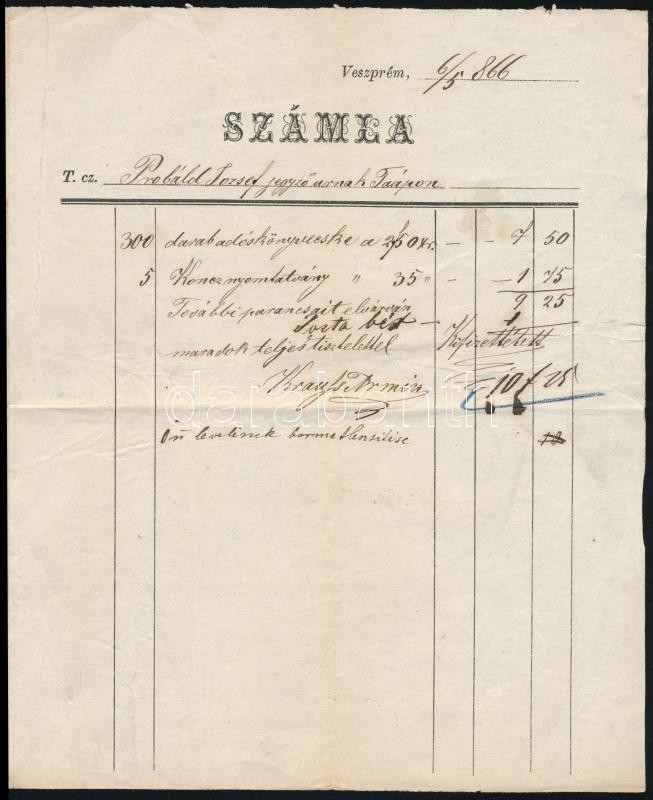 Veszprém, 6/5 866
SZÁMLA
T. cz. Probáld Jozsef jegyző urnak Taápon
300 darab adóskönyvecske a 2f50kr. – – 7 50
5 Koncz nyomtatvány " 35 " – – 1 75
9 25
További parancsait elvárván
Posta bér – 1
maradok teljes tisztelettel Kifizettetett
Krauss Ármin 10 f 25
darabanth
Ön levelének bérmentesitése 10